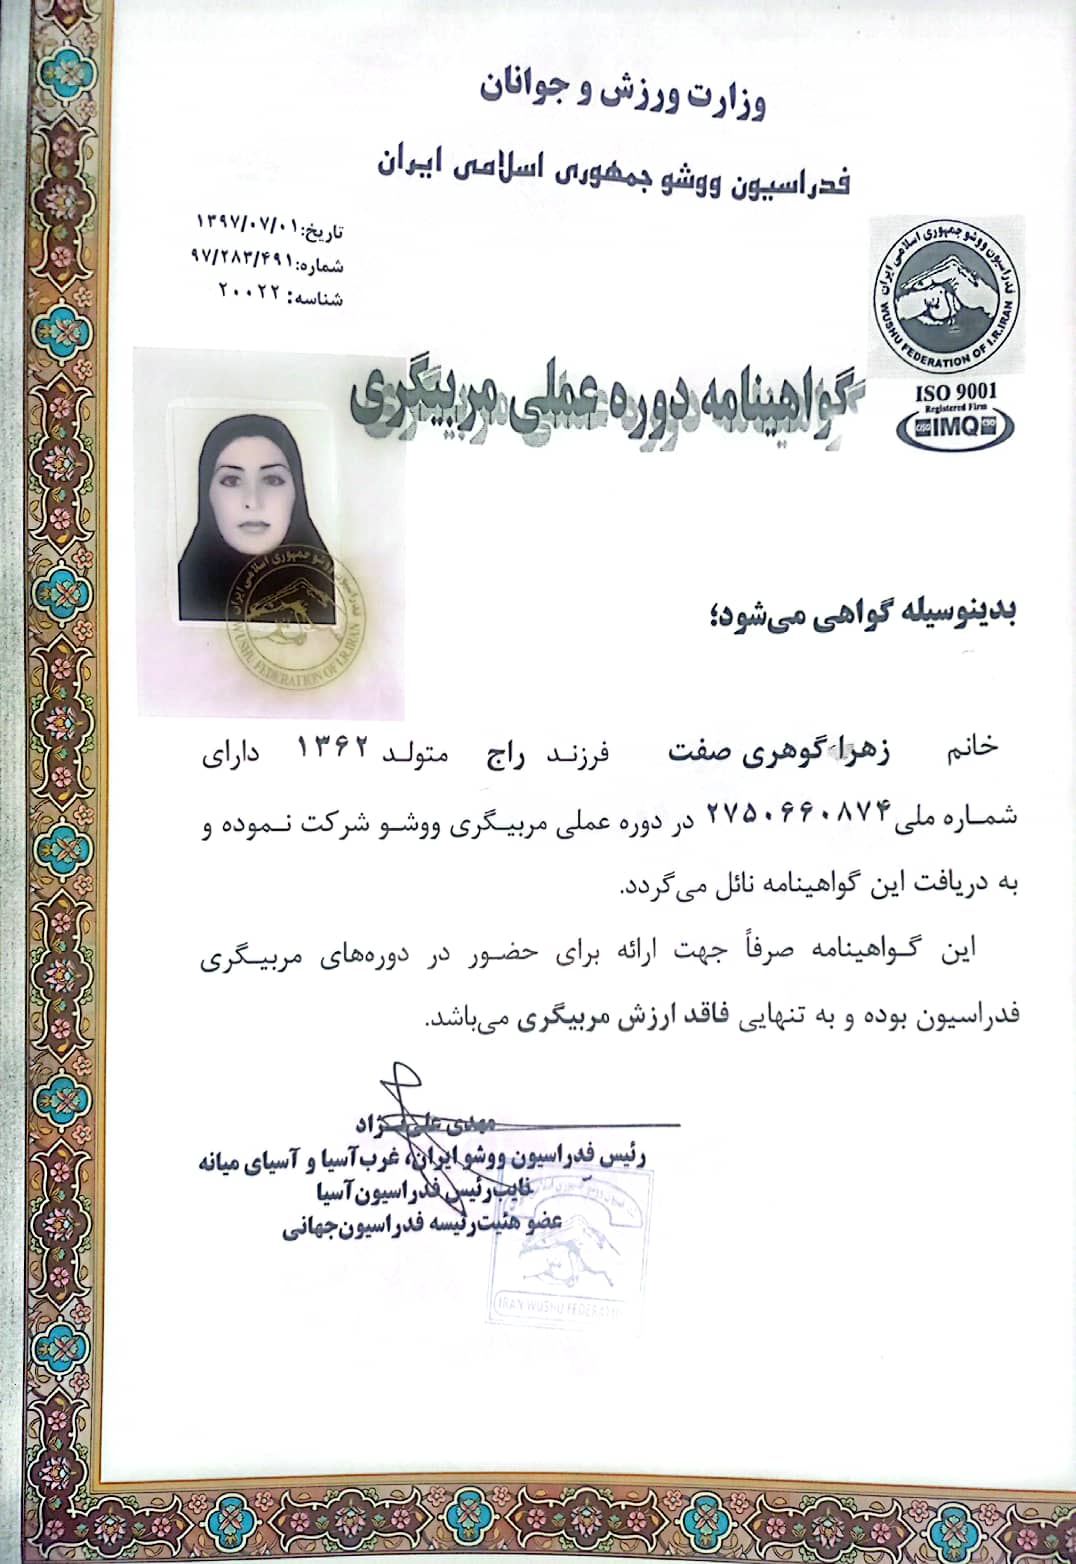 وزارت ورزش و جوانان
فدراسیون ووشو جمهوری اسلامی ایران
تاریخ: ۱۳۹۷/۰۷/۰۱
شماره: ۹۷/۲۸۳/۴۹۱
شناسه: ۲۰۰۲۲
فدراسیون ووشو جمهوری اسلامی ایران
WUSHU FEDERATION OF I.R.IRAN
ISO 9001
Registered Firm
IMQ
گواهینامه دوره عملی مربیگری
فدراسیون ووشو جمهوری اسلامی ایران
WUSHU FEDERATION OF I.R.IRAN
بدینوسیله گواهی می‌شود؛
خانم زهرا گوهری صفت فرزند راج متولد ۱۳۶۲ دارای
شماره ملی ۲۷۵۰۶۶۰۸۷۴ در دوره عملی مربیگری ووشو شرکت نموده و
به دریافت این گواهینامه نائل می‌گردد.
این گواهینامه صرفاً جهت ارائه برای حضور در دوره‌های مربیگری
فدراسیون بوده و به تنهایی فاقد ارزش مربیگری می‌باشد.
مهدی علی‌نژاد
رئیس فدراسیون ووشو ایران، غرب آسیا و آسیای میانه
نایب‌رئیس فدراسیون آسیا
عضو هئیت‌رئیسه فدراسیون‌جهانی
IRAN WUSHU